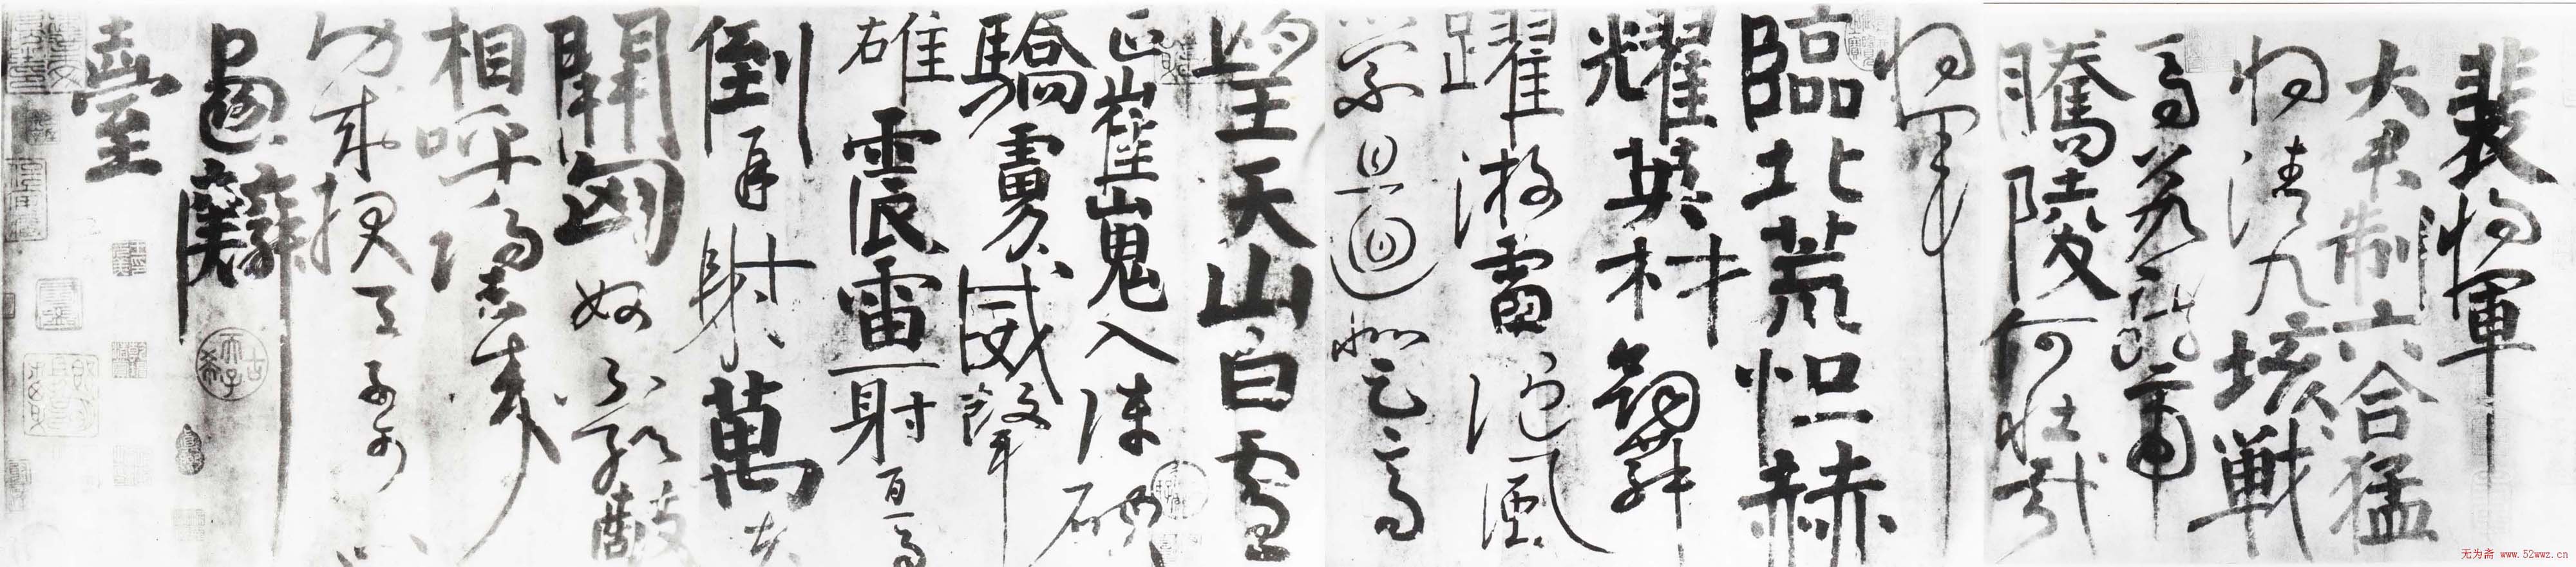 裴将軍
大君制六合猛
将清九垓戰
馬若龍虎
騰陵何壯哉
将軍
臨北荒烜赫
耀英材劒舞
躍游雷随風
縈且迴登高
望天山白雪
正崔嵬入陣破
驕虜威聲
雄震雷一射百馬
倒再射萬夫
開匈奴不敢敵
相呼歸去來
功成報天子可以
畫麟
臺
无为斋 www.52wwz.cn